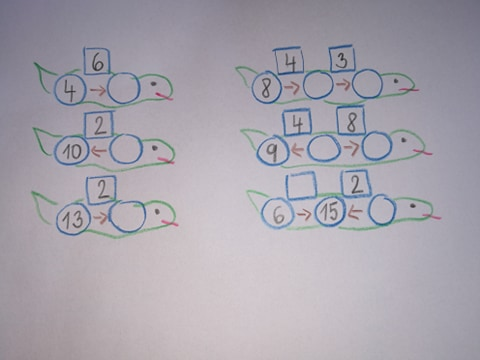 6
4 → 
2
10 ← 
2
13 → 
4 3
8 → →
4 8
9 ← →
2
6 → 15 ←